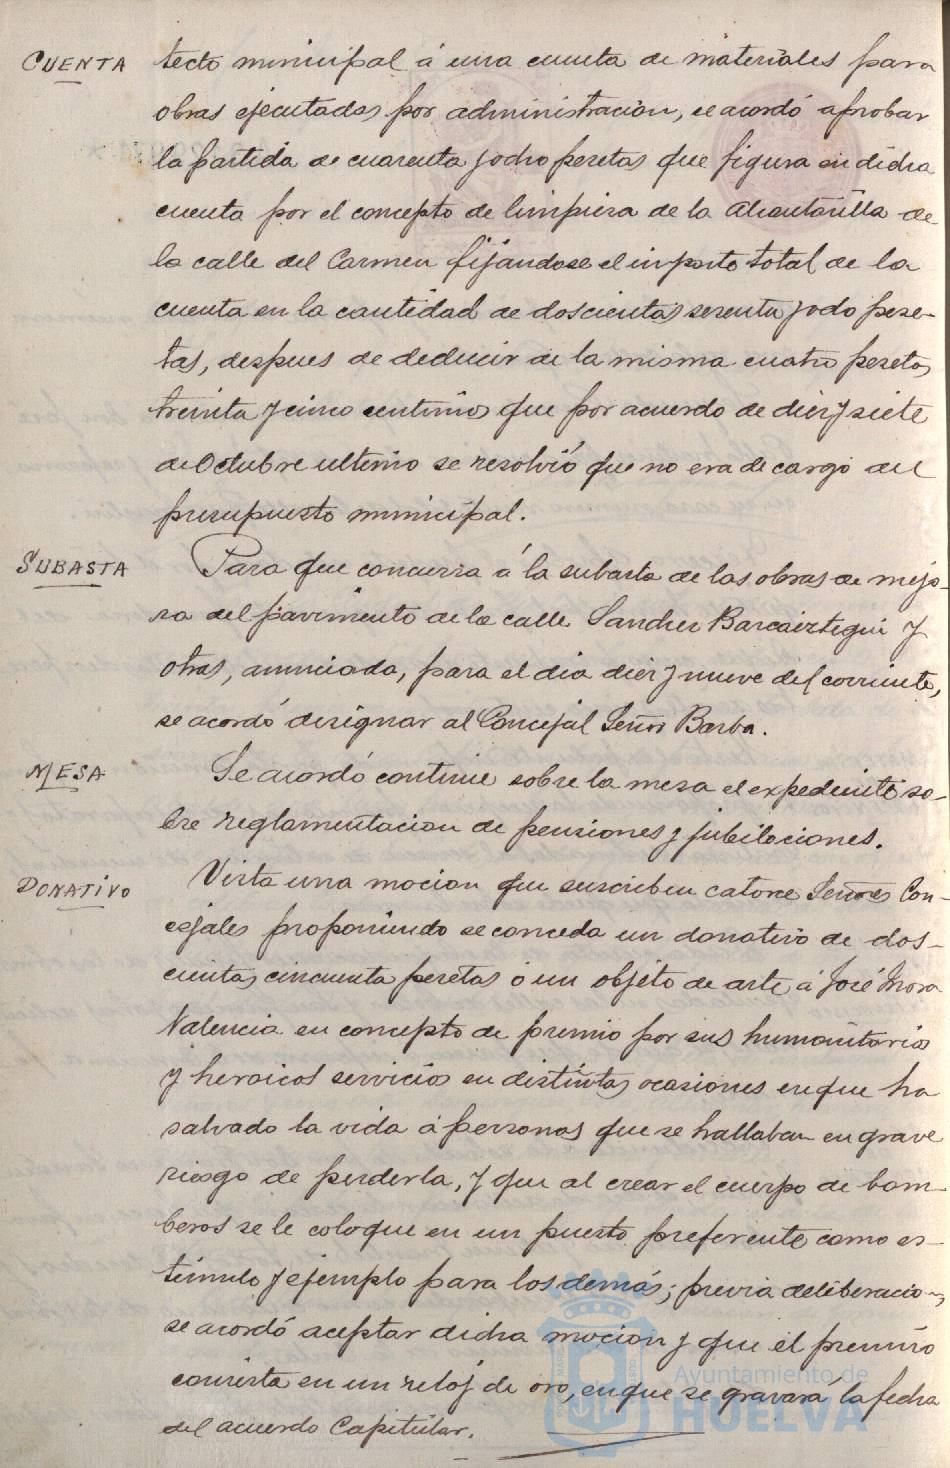 CUENTA
tecto municipal á una cuenta de materiales para
obras ejecutadas por administracion, se acordó aprobar
la partida de cuarenta y ocho pesetas que figura en dicha
cuenta por el concepto de limpieza de la Alcantarilla de
la calle del Carmen fijandose el importe total de la
cuenta en la cantidad de doscientas sesenta y ocho pese-
tas, despues de deducir de la misma cuatro pesetas
treinta y cinco centimos que por acuerdo de diez y siete
de Octubre ultimo se resolvió que no era de cargo del
presupuesto municipal.
SUBASTA
Para que concurra á la subasta de las obras de mejo-
ra del pavimento de la calle Sanchez Barcaiztegui y
otras, anunciada, para el dia diez y nueve del corriente,
se acordó designar al Concejal Señor Barba.
MESA
Se acordó continue sobre la mesa el expediente so-
bre reglamentacion de pensiones y jubilaciones.
DONATIVO
Vista una mocion que suscriben catorce Señores Con-
cejales proponiendo se conceda un donativo de dos-
cientas cincuenta pesetas o un objeto de arte á José Mora
Valencia en concepto de premio por sus humanitarios
y heroicos servicios en distintas ocasiones en que ha
salvado la vida á personas que se hallaban en grave
riesgo de perderla, y que al crear el cuerpo de bom-
beros se le coloque en un puesto preferente como es-
tímulo y ejemplo para los demás; previa deliberacion,
se acordó aceptar dicha mocion y que el premio
consista en un reloj de oro, en que se gravará la fecha
del acuerdo Capitular.
Ayuntamiento de
HUELVA